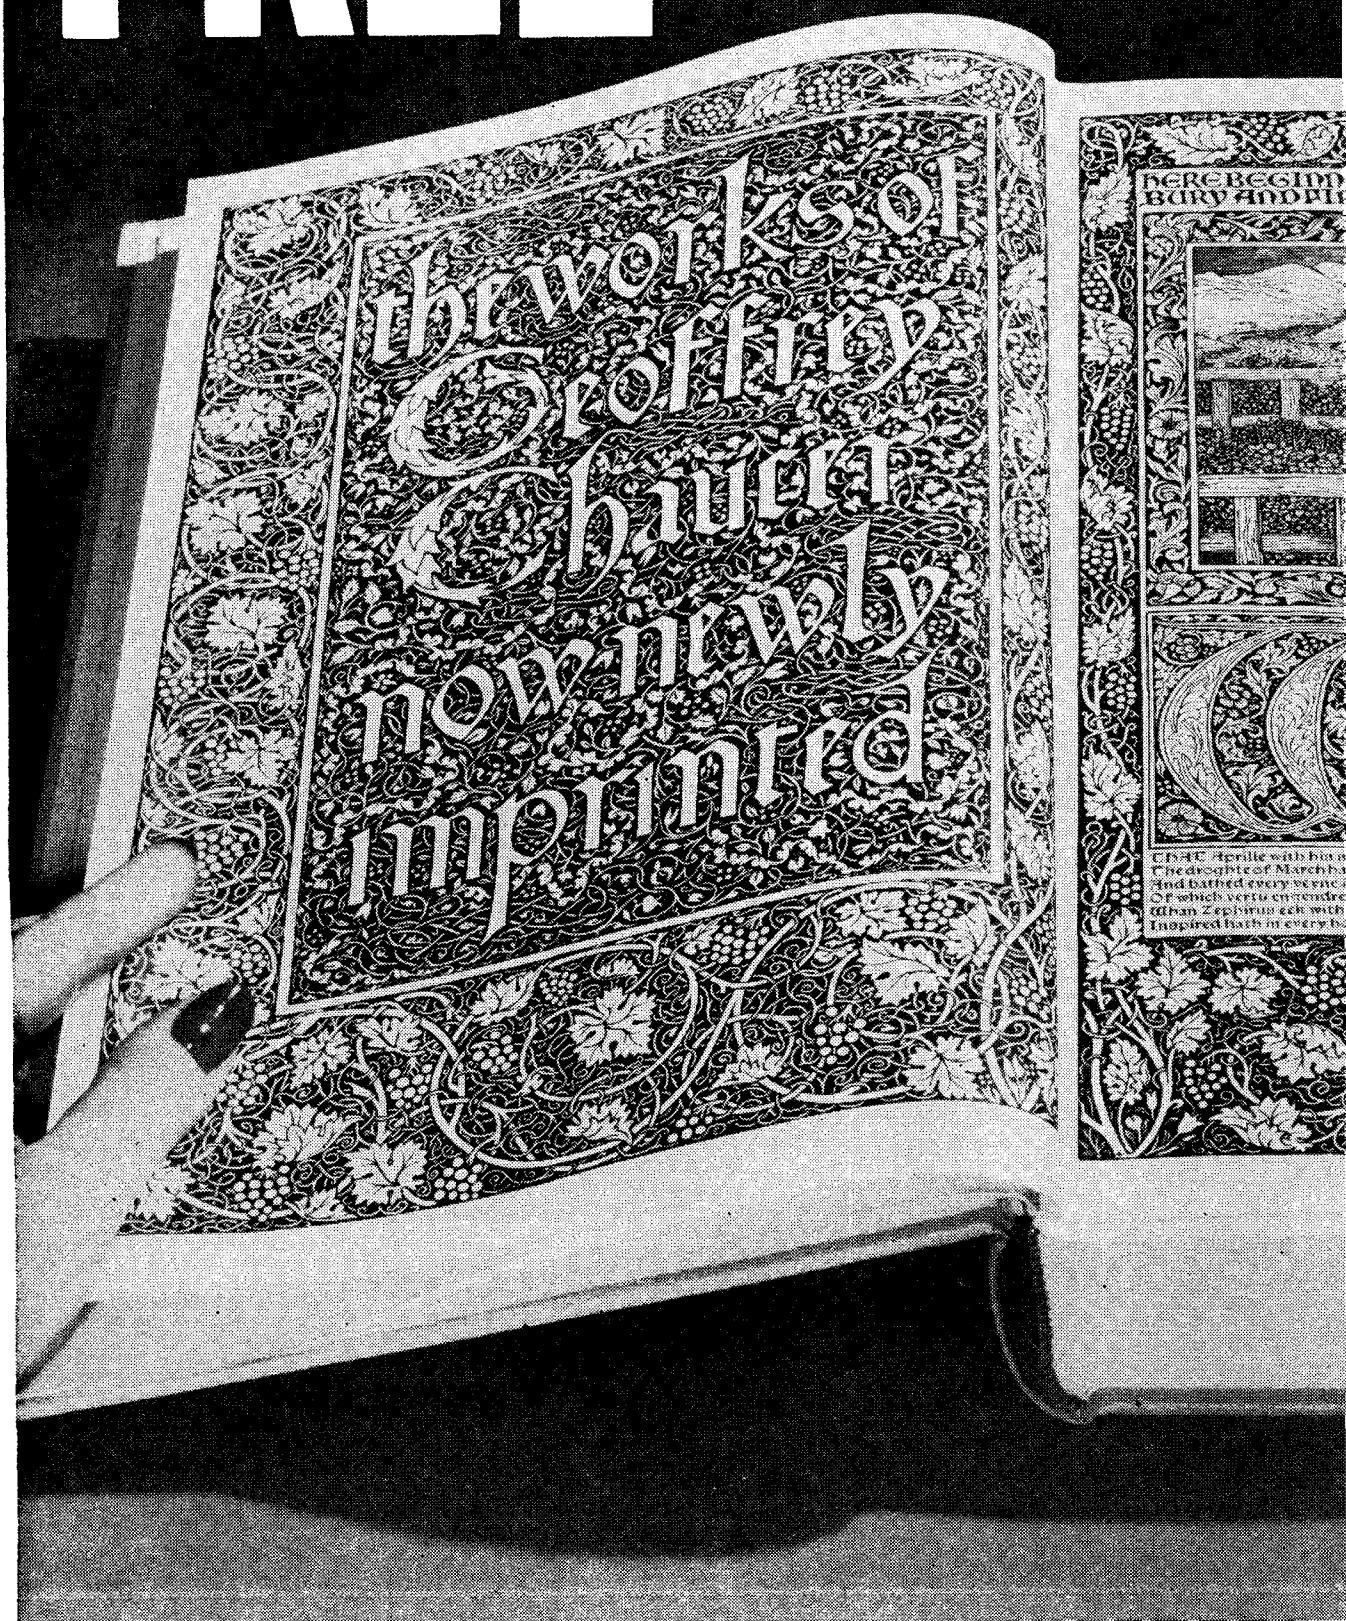 FREE
the works of
Geoffrey
Chaucer
now newly
imprinted
HERE BEGINN
BURY AND FIR
THAT Aprille with his
The droghte of March ha
And bathed every veyne
Of which vertu engendre
Whan Zephirus eek with
Inspired hath in every h